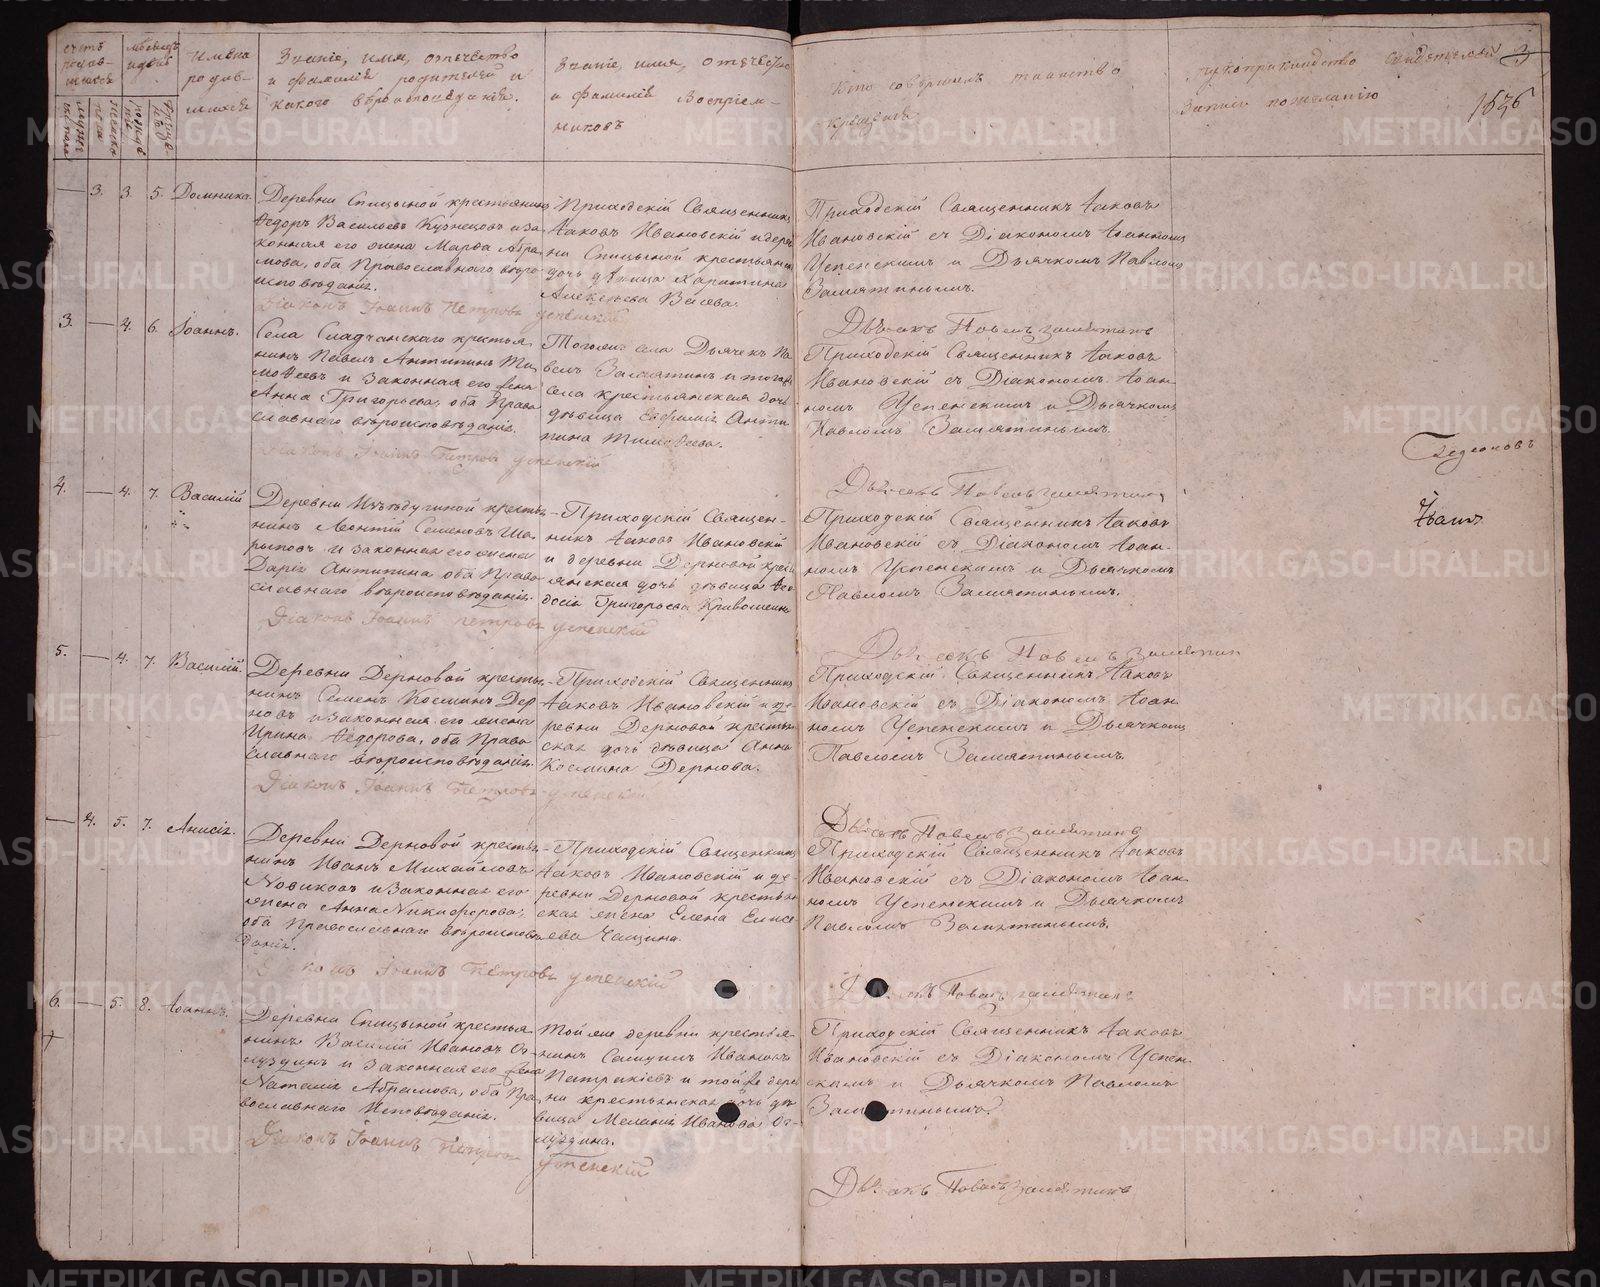 Имена родив-
шихся
Званіе, имя, отчество
и фамилія родителей и
какого вѣроисповѣданія.
Званіе, имя, отчество
и фамилія Воспріем-
никовъ
Кто совершалъ таинство
крещенія
Рукоприкладство свидѣтелей
записи по желанію
3
3. 3. 5. Домника.
Деревни Спицыной крестьянинъ
Ѳедоръ Васильевъ Кузнецовъ и за-
конная его жена Марѳа Абра-
мова, оба Православнаго вѣро-
исповѣданія.
Приходскій Священникъ
Іаковъ Ивановскій и дерев-
ни Спицыной крестьянина
дочь дѣвица Харитина
Алексѣева
Приходскій Священникъ Іаковъ
Ивановскій съ Діакономъ Іоанномъ
Успенскимъ и Дьячкомъ Павломъ
Замятинымъ.
Діаконъ Іоаннъ Петровъ Успенскій
Дьячекъ Павелъ Замятинъ
3. 4. 6. Іоаннъ.
Села крестья-
нинъ Павелъ Антипинъ Ти-
моѳеевъ и законная его жена
Анна Григорьева, оба Право-
славнаго вѣроисповѣданія.
Тогоже села Дьячекъ Па-
велъ Замятинъ и тогоже
села крестьянская дочь
дѣвица Евфимія Анти-
пина Тимоѳеева.
Приходскій Священникъ Іаковъ
Ивановскій съ Діакономъ Іоан-
номъ Успенскимъ и Дьячкомъ
Павломъ Замятинымъ.
Діаконъ Іоаннъ Петровъ Успенскій
Дьячекъ Павелъ Замятинъ
4. 4. 7. Василій
Деревни крестья-
нинъ Леонтій Семеновъ Ша-
рыповъ и законная его жена
Дарія Антипина оба Право-
славнаго вѣроисповѣданія.
Приходскій Священ-
никъ Іаковъ Ивановскій
и деревни Дерновой крест-
янская дочь дѣвица Ѳео-
досія Григорьева
Приходскій Священникъ Іаковъ
Ивановскій съ Діакономъ Іоан-
номъ Успенскимъ и Дьячкомъ
Павломъ Замятинымъ.
Іоаннъ
Діаконъ Іоаннъ Петровъ Успенскій
Дьячекъ Павелъ Замятинъ
5. 4. 7. Василій.
Деревни Дерновой крестья-
нинъ Семенъ Косминъ Дер-
новъ и законная его жена
Ирина Ѳедорова, оба Право-
славнаго вѣроисповѣданія.
Приходскій Священникъ
Іаковъ Ивановскій и де-
ревни Дерновой крестьян-
ская дочь дѣвица Анна
Космина Дернова.
Приходскій Священникъ Іаковъ
Ивановскій съ Діакономъ Іоан-
номъ Успенскимъ и Дьячкомъ
Павломъ Замятинымъ.
Діаконъ Іоаннъ Петровъ Успенскій
Дьячекъ Павелъ Замятинъ
4. 5. 7. Анисія.
Деревни Дерновой крестья-
нинъ Иванъ Михайловъ
Новиковъ и законная его
жена Анна Никифорова,
оба Православнаго вѣроисповѣ-
данія.
Приходскій Священникъ
Іаковъ Ивановскій и де-
ревни Дерновой крестьян-
ская жена Елена Елисе-
ева Чащина.
Приходскій Священникъ Іаковъ
Ивановскій съ Діакономъ Іоан-
номъ Успенскимъ и Дьячкомъ
Павломъ Замятинымъ.
Діаконъ Іоаннъ Петровъ Успенскій
Дьячекъ Павелъ Замятинъ
6. 5. 8. Іоаннъ.
Деревни Спицыной крестья-
нинъ Василій Ивановъ Ог-
луздинъ и законная его жена
Наталія Абрамова, оба Пра-
вославнаго исповѣданія.
Той же деревни крестья-
нинъ Самуилъ Ивановъ
Патракѣевъ и той же дерев-
ни крестьянская дочь дѣ-
вица Меланія Иванова Ог-
луздина.
Приходскій Священникъ Іаковъ
Ивановскій съ Діакономъ Успен-
скимъ и Дьячкомъ Павломъ
Замятинымъ.
Діаконъ Іоаннъ Петровъ
Успенскій
Дьячекъ Павелъ Замятинъ
METRIKI.GASO-URAL.RU